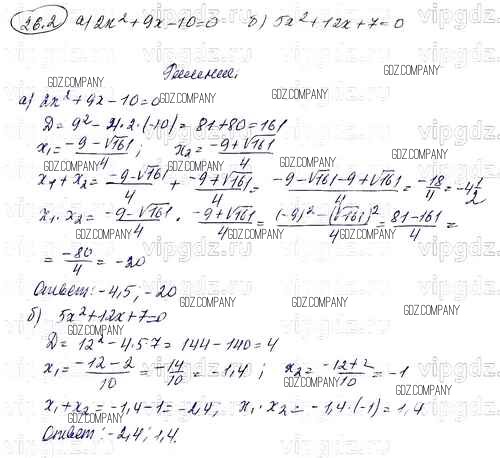 26.2 а) 2x² + 9x - 10 = 0 б) 5x² + 12x + 7 = 0
Решение.
а) 2x² + 9x - 10 = 0
D = 9² - 4·2·(-10) = 81 + 80 = 161
x₁ = (-9 - √161)/4 ; x₂ = (-9 + √161)/4
x₁ + x₂ = (-9 - √161)/4 + (-9 + √161)/4 = (-9 - √161 - 9 + √161)/4 = -18/4 = -4 1/2
x₁ · x₂ = (-9 - √161)/4 · (-9 + √161)/4 = ((-9)² - (√161)²)/4 = (81 - 161)/4 =
= -80/4 = -20
Ответ: -4,5, -20
б) 5x² + 12x + 7 = 0
D = 12² - 4·5·7 = 144 - 140 = 4
x₁ = (-12 - 2)/10 = -14/10 = -1,4 ; x₂ = (-12 + 2)/10 = -1
x₁ + x₂ = -1,4 - 1 = -2,4; x₁ · x₂ = -1,4·(-1) = 1,4
Ответ: -2,4; 1,4.
GDZ.COMPANY
vipgdz.ru